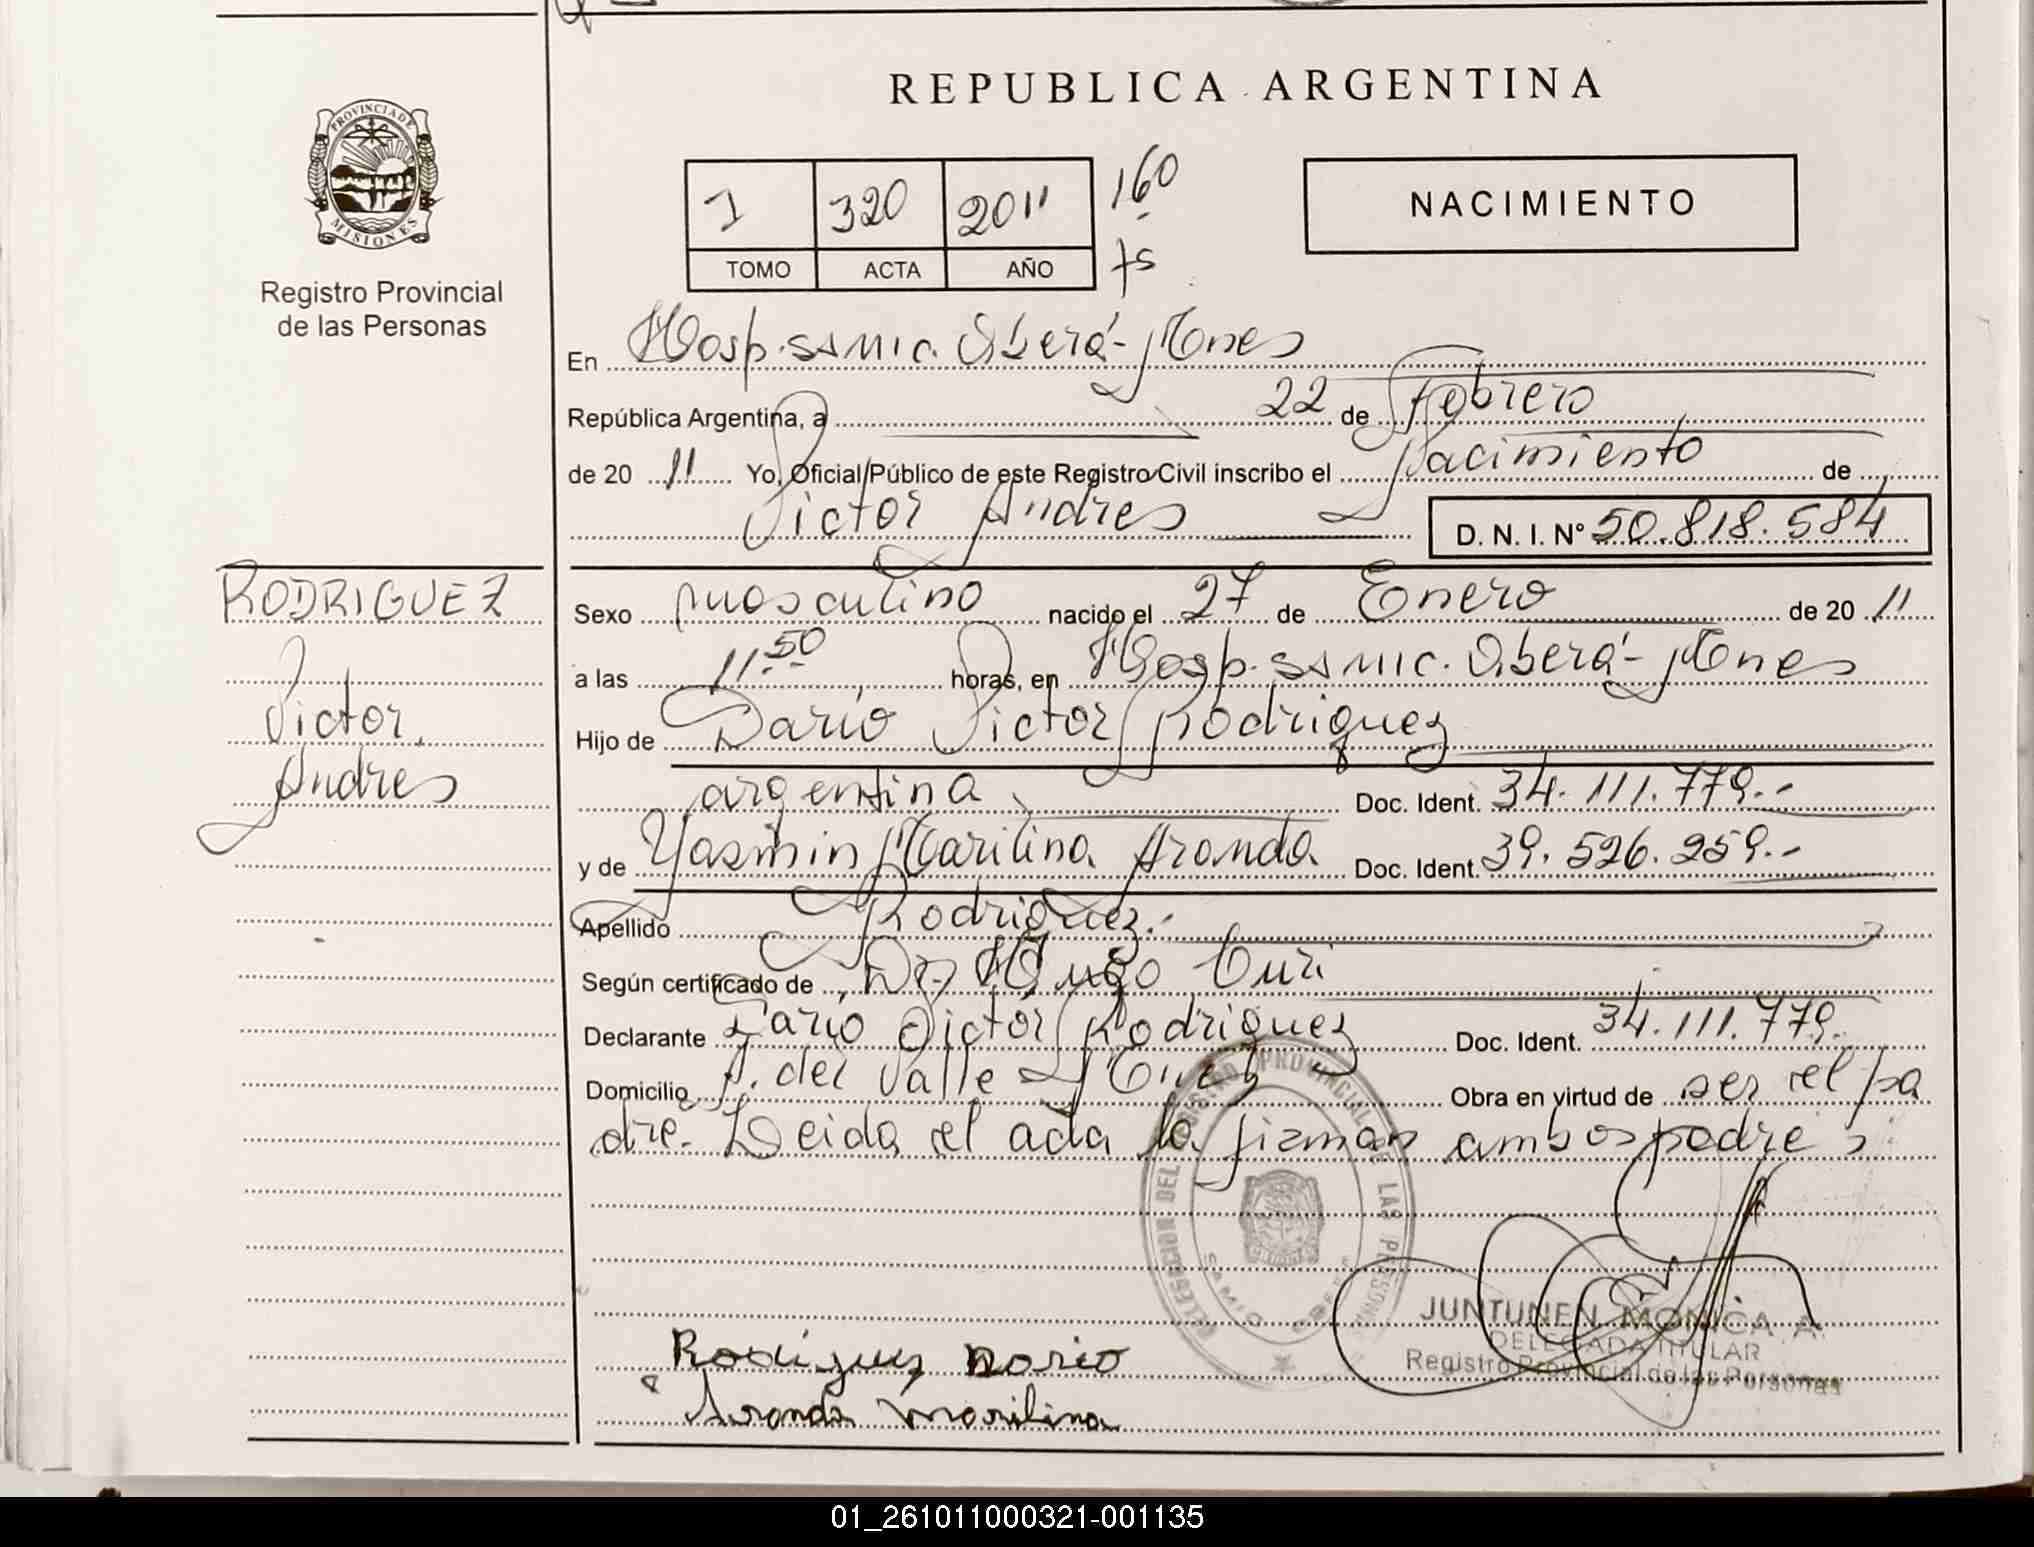 REPUBLICA ARGENTINA
PROVINCIA DE MISIONES
Registro Provincial
de las Personas
1 320 2011 160
TOMO ACTA AÑO fs
NACIMIENTO
En Hosp. SAMIC. Oberá - Mnes
República Argentina, a 22 de Febrero
de 20 11 Yo, Oficial Público de este Registro Civil inscribo el Nacimiento de
Victor Andres D. N. I. Nº 50.818.584
RODRIGUEZ
Victor
Andres
Sexo masculino nacido el 27 de Enero de 20 11
a las 11.50 horas, en Hosp. SAMIC. Oberá - Mnes
Hijo de Darío Victor Rodriguez
argentina Doc. Ident. 34.111.779.-
y de Yasmin Marilina Aranda Doc. Ident. 39.526.259.-
Apellido Rodriguez.
Según certificado de Dr. Hugo Curi
Declarante Darío Victor Rodriguez Doc. Ident. 34.111.779.
Domicilio A. del Valle Obra en virtud de ser el pa
dre. Leida el acta la firman ambos padres
DELEGACION DEL REGISTRO PROVINCIAL DE LAS PERSONAS
SAMIC
JUNTUNEN, MONICA A.
DELEGADA TITULAR
Registro Provincial de las Personas
Rodriguez Dario
Aranda Marilina
01_261011000321-001135